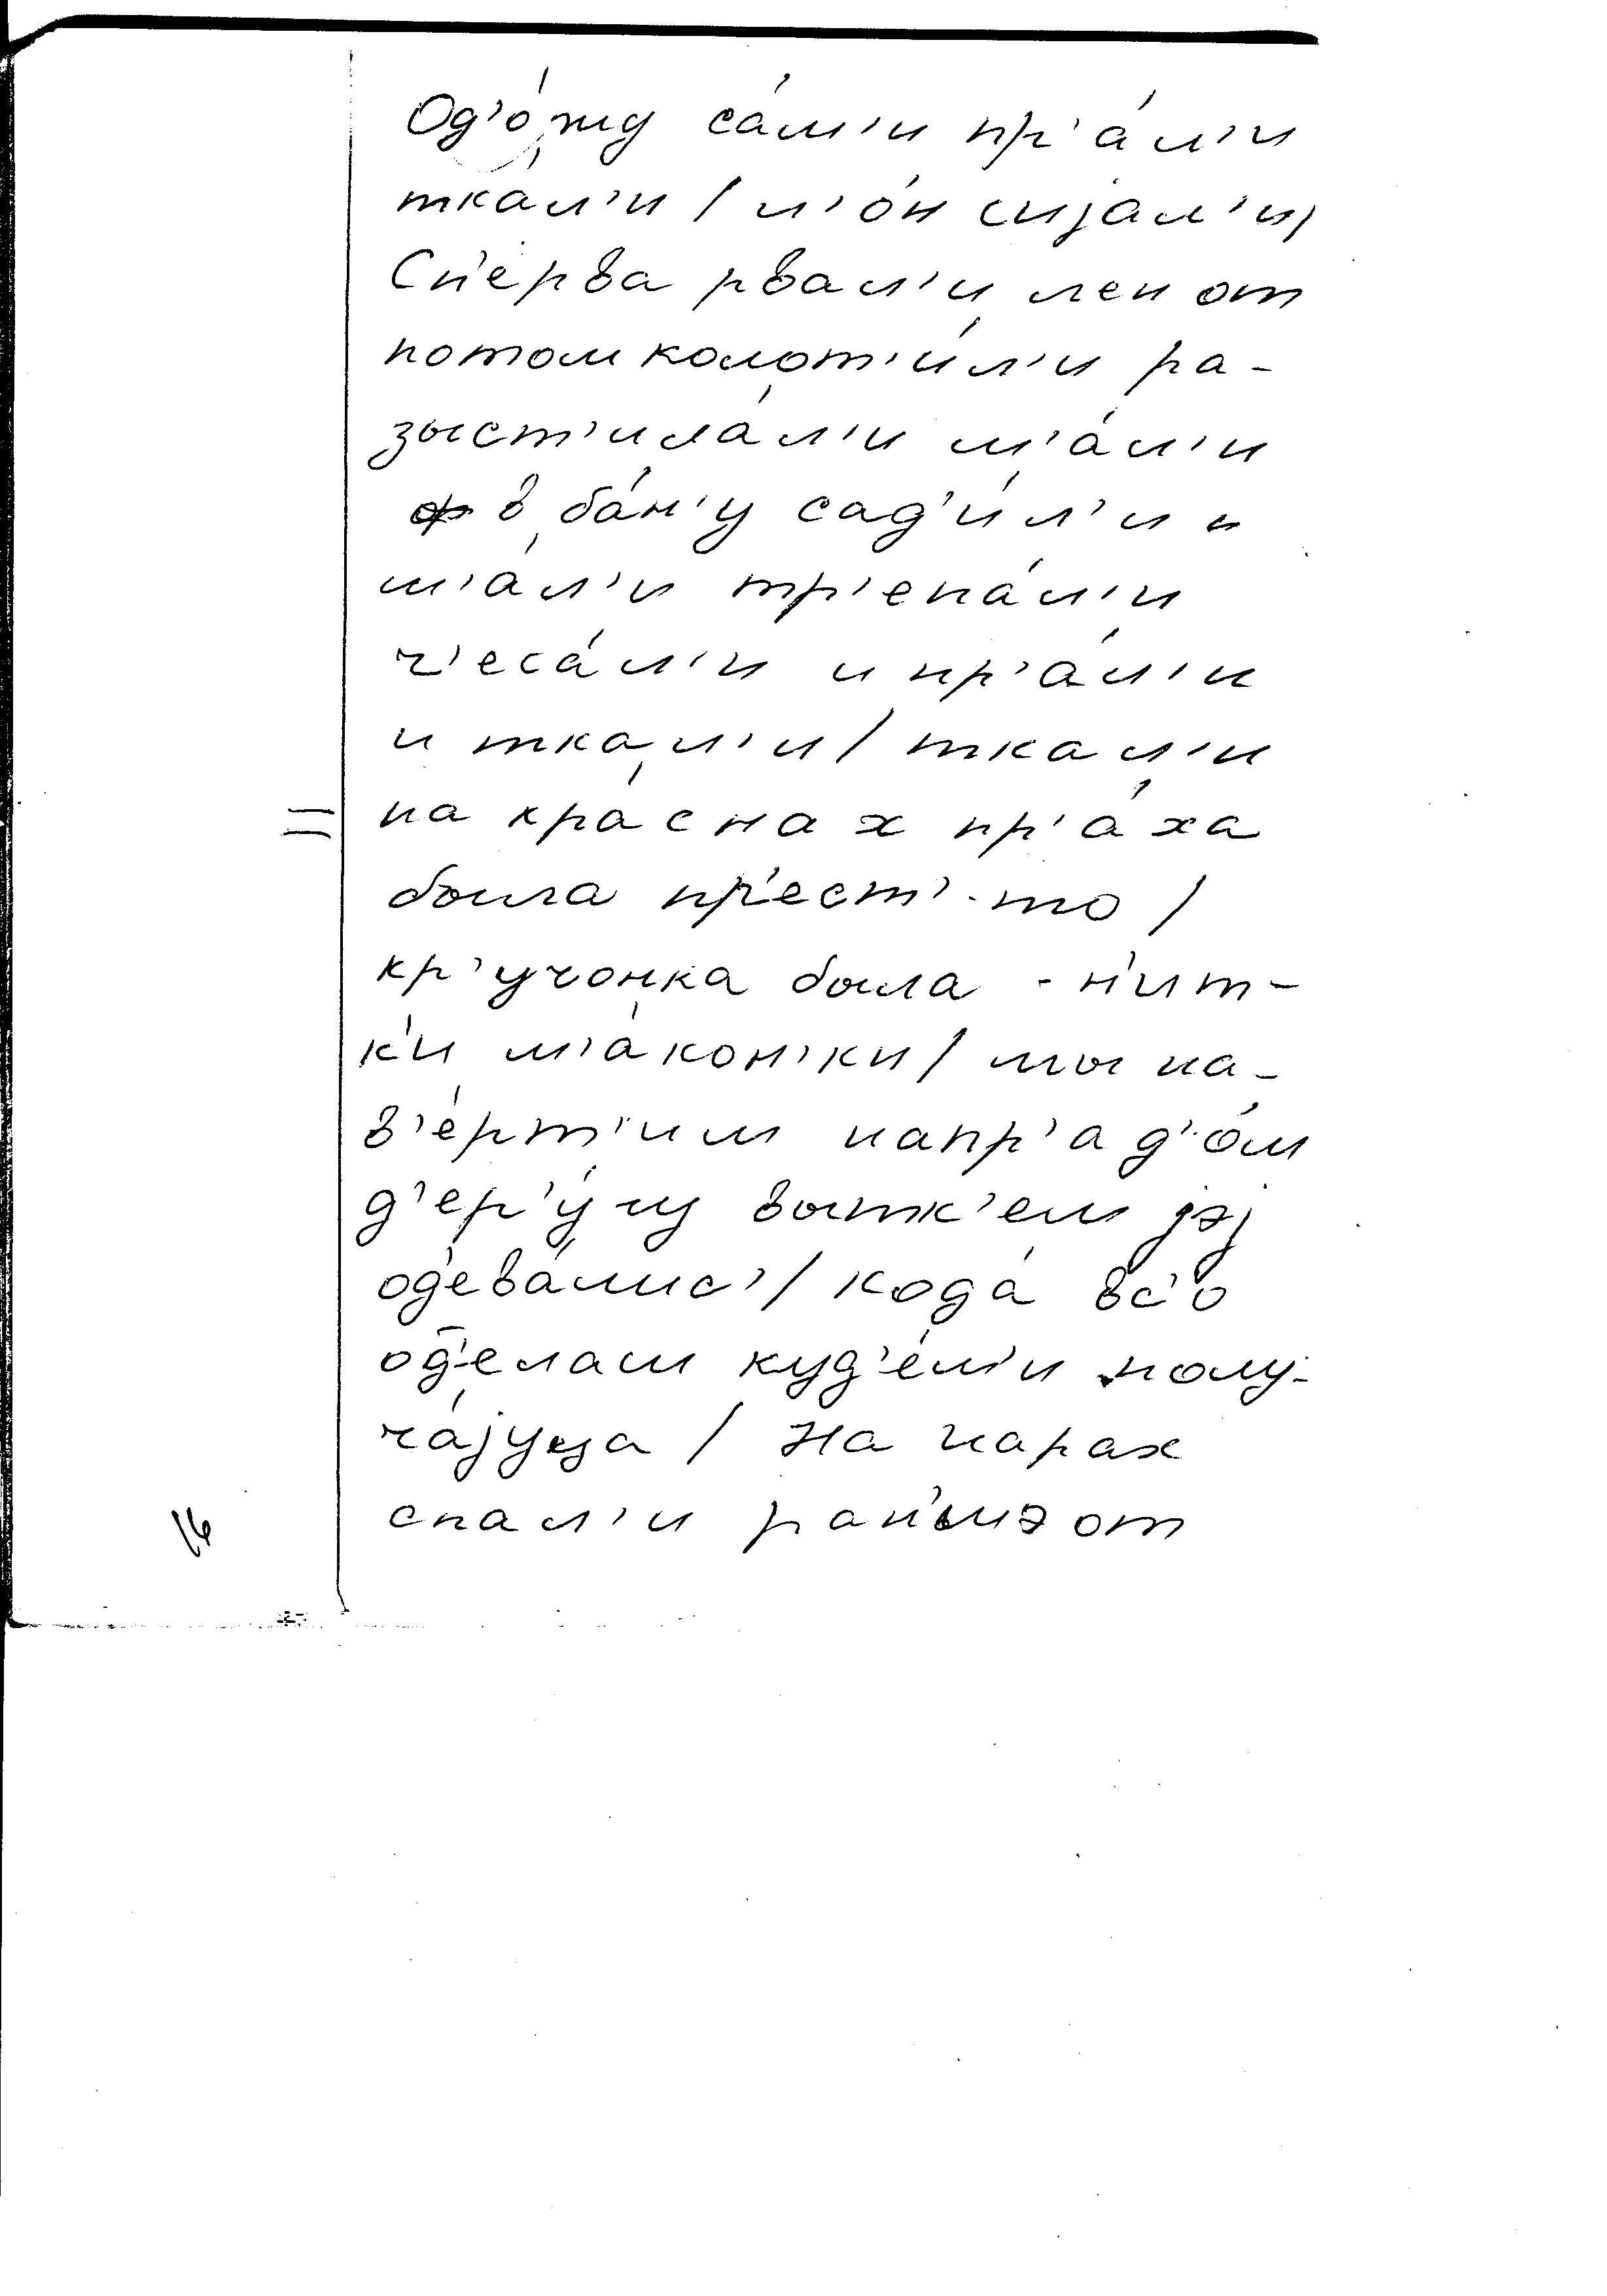 Од'о́жу са́м'и пр'а́л'и
тка́л'и / л'о́н сија́л'и /
Сп'ерва рвал'и лен от
потом колот'и́л'и ра-
зыст'ила́л'и м'а́л'и
в ба́н'у сад'и́л'и и
м'а́л'и тр'епа́л'и
ч'еса́л'и и пр'а́л'и
и тка́л'и / ткал'и
на кра́снах пр'а́ха
была пр'ест'-то /
кр'учонка была - н'ит-
к'и м'а́кон'ки / мы на-
в'е́рт'им напр'ад'о́м
д'ер'у́гу вытк'ем јэј
од'ева́лис' / кода́ вс'о
од'елам куд'е́л'и полу-
ча́јуца / На нарах
спал'и ран'шэ от
16